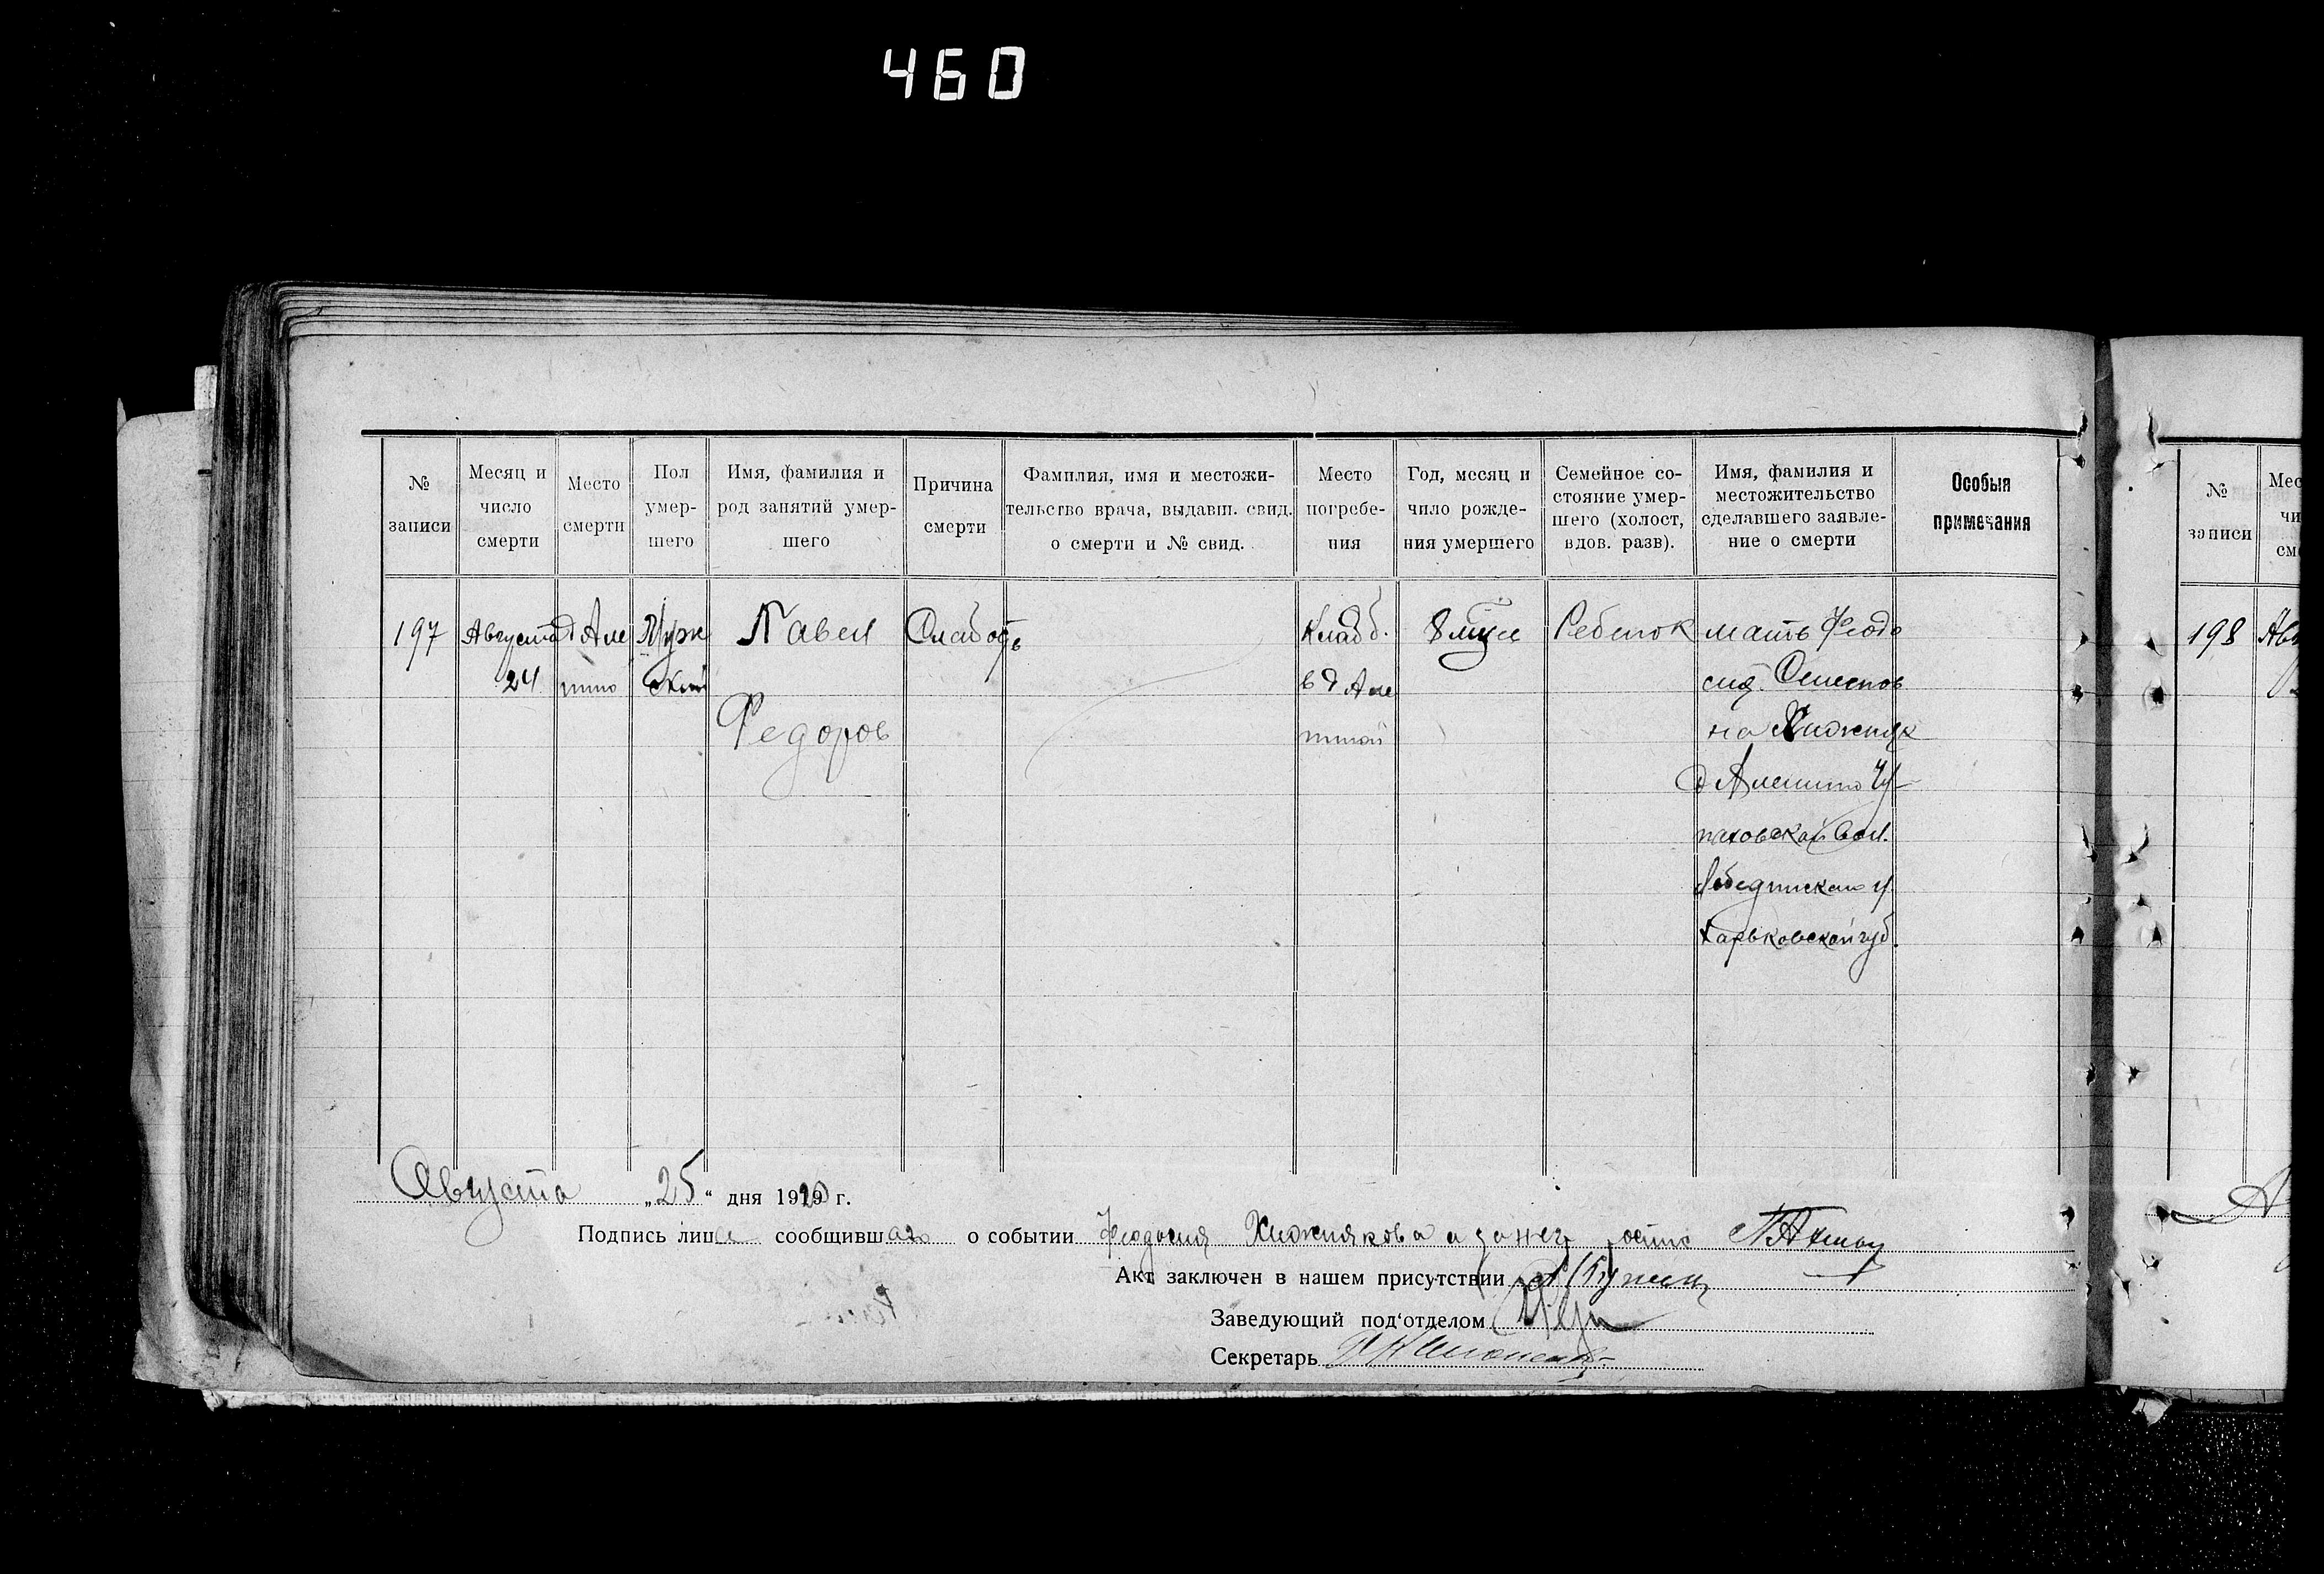 460
№ записи
Месяц и число смерти
Место смерти
Пол умер-шего
Имя, фамилия и род занятий умер-шего
Причина смерти
Фамилия, имя и местожи-тельство врача, выдавш. свид. о смерти и № свид.
Место погребе-ния
Год, месяц и чило рожде-ния умершего
Семейное со-стояние умер-шего (холост, вдов. разв).
Имя, фамилия и местожительство сделавшего заявле-ние о смерти
Особыя примечания
197
Августа
24
д Але
шино
Муж
ский
Павел
Федоров
Слабость
Кладб.
в д Але
шиной
8
Ребенок
мать Феодо
сия Семенов
на Хижняк
д Алешино
Лебединскаго у
Харьковской губ.
Августа „25“ дня 1920 г.
Подпись лица сообщившаго о событии Феодосия Хижнякова а за нея
Акт заключен в нашем присутствии
Заведующий под'отделом
Секретарь
№ записи
198